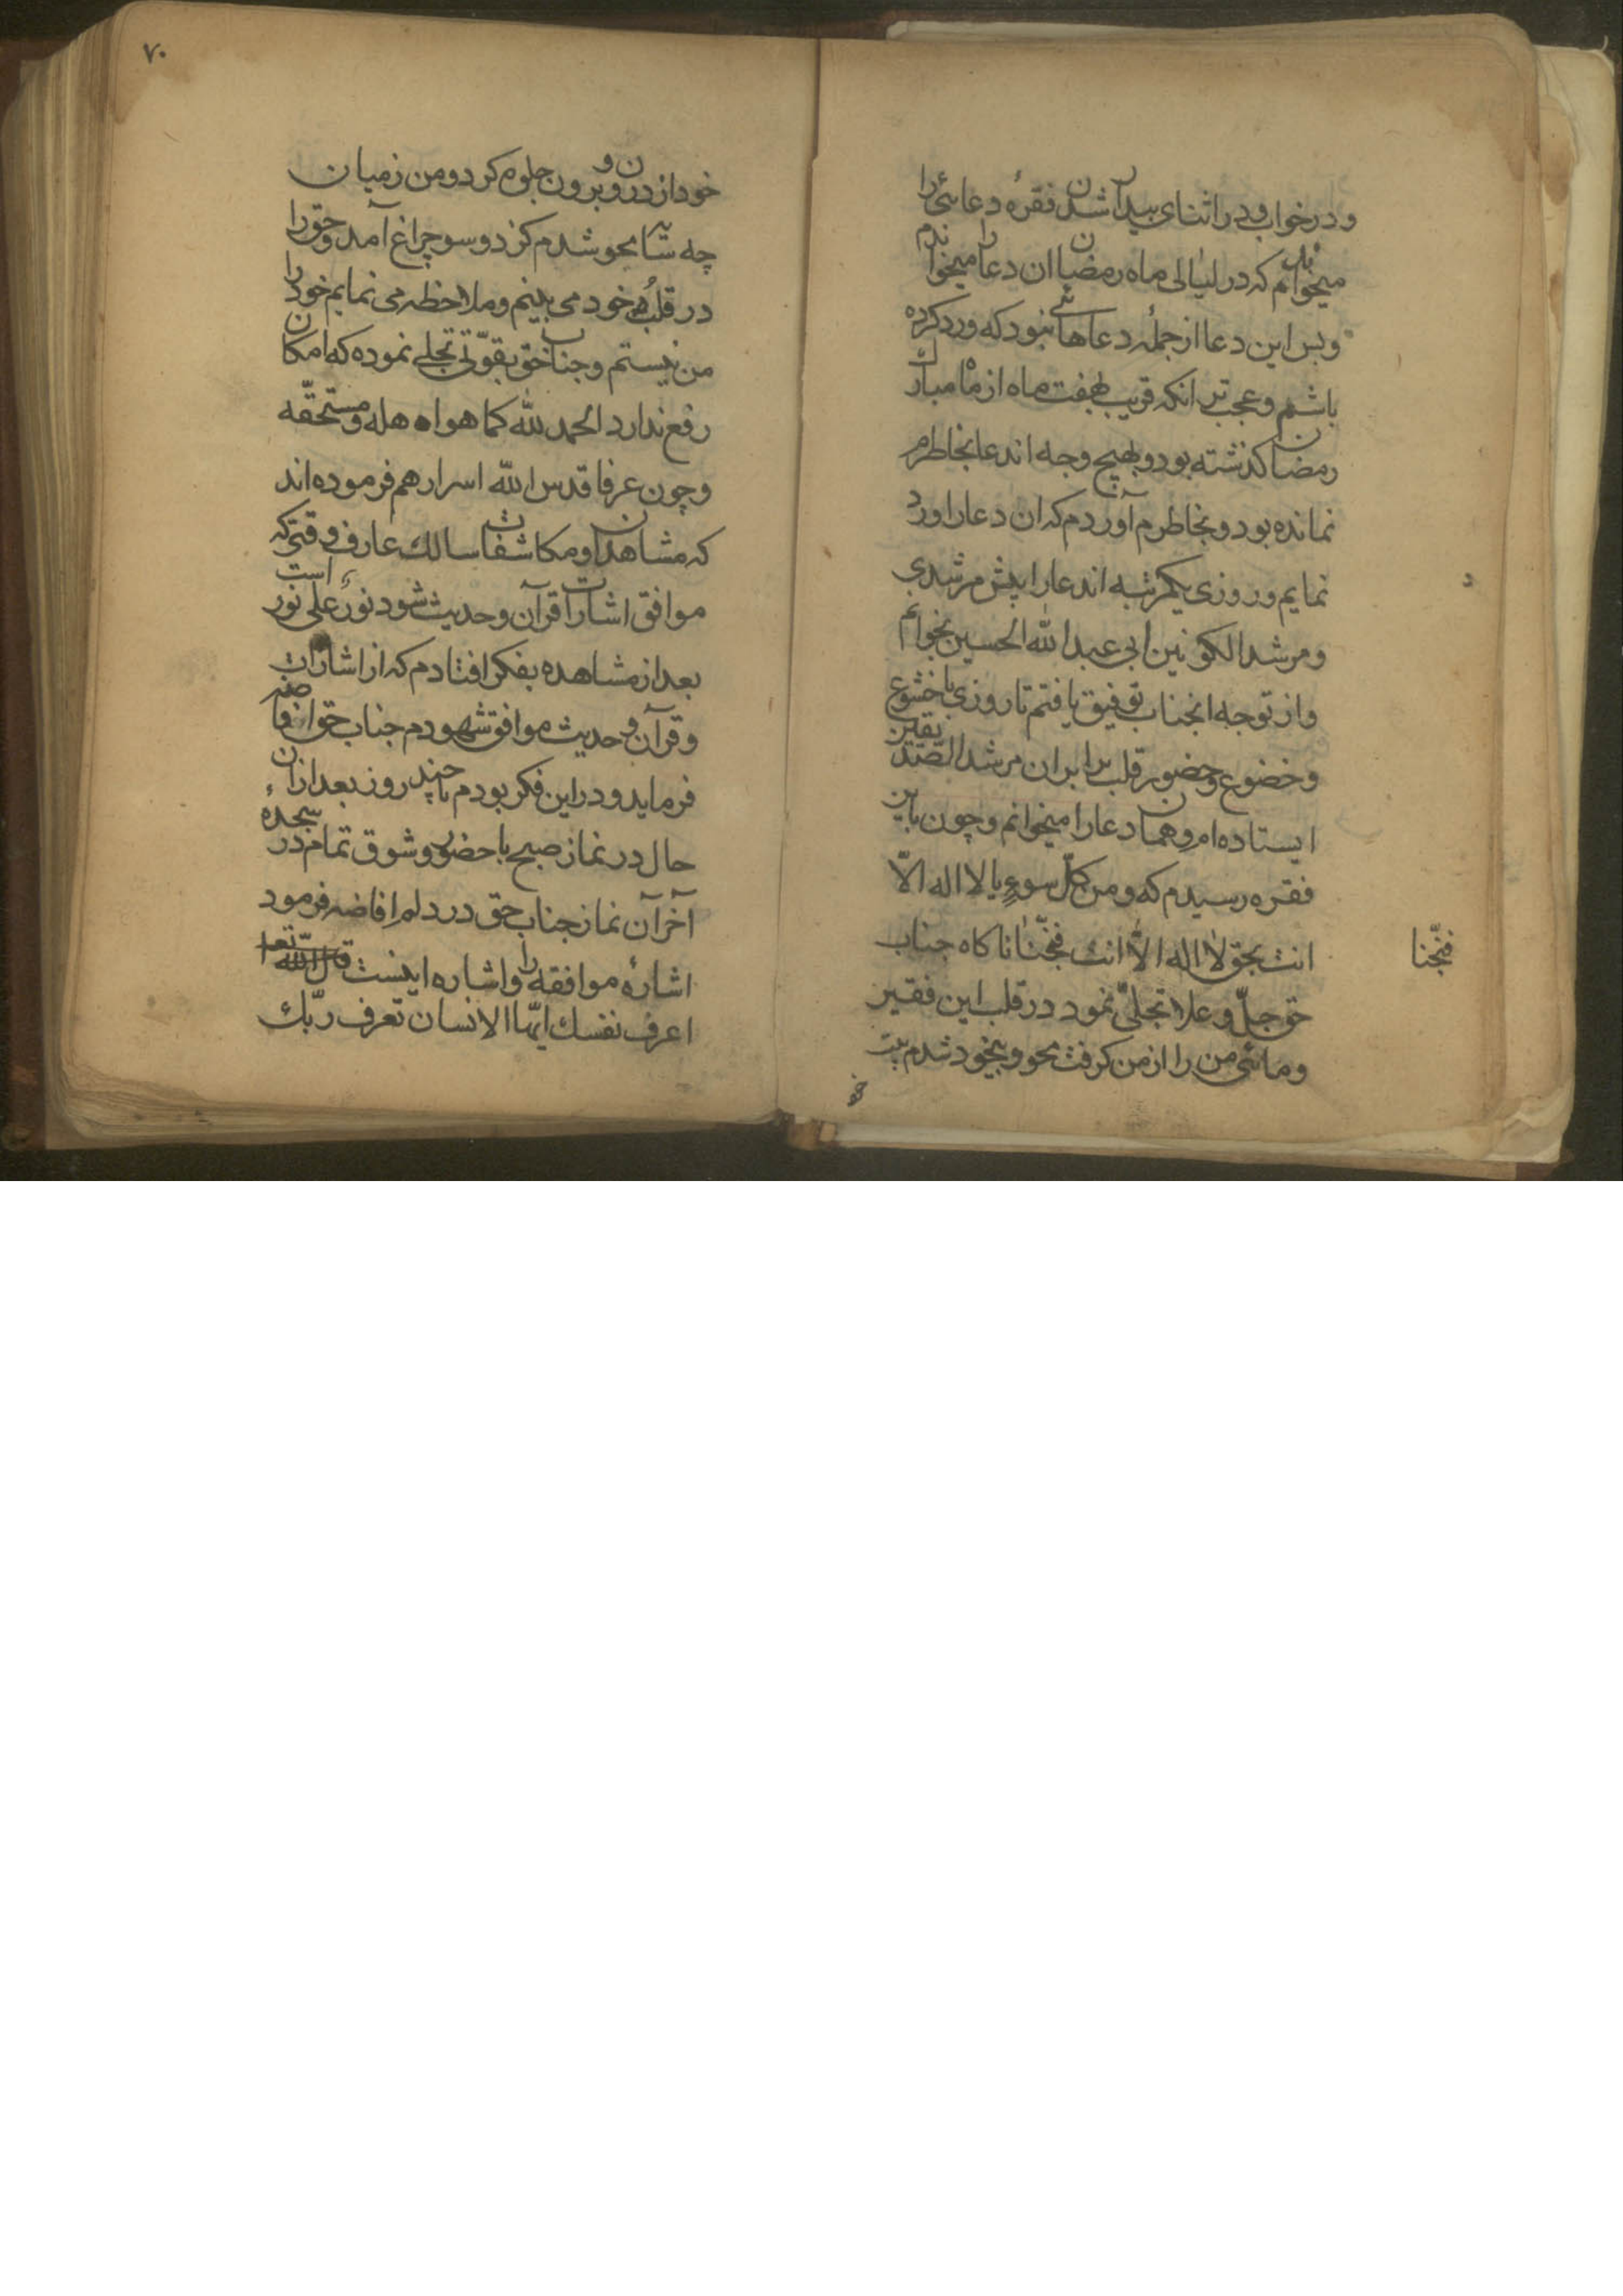 و در خواب و در اثنای بیدار شدن فقرهٔ دعائی را
میخوانم که در لیالی ماه رمضان ان دعا را میخواندم
و بس این دعا از جملهٔ دعاهائی نبود که ورد کرده
باشم و عجب تر انکه قریب بهفت ماه از ماه مبارك
رمضان کذشته بود و بهیچ وجه اندعا بخاطرم
نمانده بود و بخاطرم آوردم که ان دعا را ورد
نمایم و روزی یکمرتبه اندعا را پیش مرشدی
و مرشد الکونین ابی عبد الله الحسین بخوانم
و از توجه انجناب توفیق یافتم تا روزی با خشوع
و خضوع و حضور قلب برابر ان مرشد الصدیقین
ایستاده ام و همان دعا را میخوانم و چون باین
فقره رسیدم که و من کلّ سوءٍ یا لا اله الّا
انت بحق لا اله الّا انت فنجّنا ناکاه جناب
فنجّنا
حق جلّ و علا تجلّی نمود در قلب این فقیر
و مائی من را از من کرفت محو و بیخود شدم بیت
خو
۷۰
خود از درون و برون جلوه کرد و من ز میان
چه سایه محو شدم کز دو سو چراغ آمد و حق را
در قلب خود می بینم و ملاحظه می نمایم خود را
من نیستم و جناب حق بقوّتی تجلے نموده که امکان
رفع ندارد الحمد لله کما هو اهله و مستحقّه
و چون عرفا قدس الله اسرارهم فرموده اند
که مشاهدات و مکاشفات سالك عارف وقتی که
موافق اشارات قرآن و حدیث شود نورٌ علی نور است
بعد از مشاهده بفکر افتادم که از اشارات
و قرآن و حدیث موافق شهودم جناب حق افاضه
فرماید و در این فکر بودم تا چند روز بعد از ان
حال در نماز صبح با حضور و شوق تمام در سجدهٔ
آخر آن نماز جناب حق در دلم افاضه فرمود
اشارهٔ موافقه را و اشاره اینست قال الله تعا
اعرف نفسك ایّها الانسان تعرف ربّك